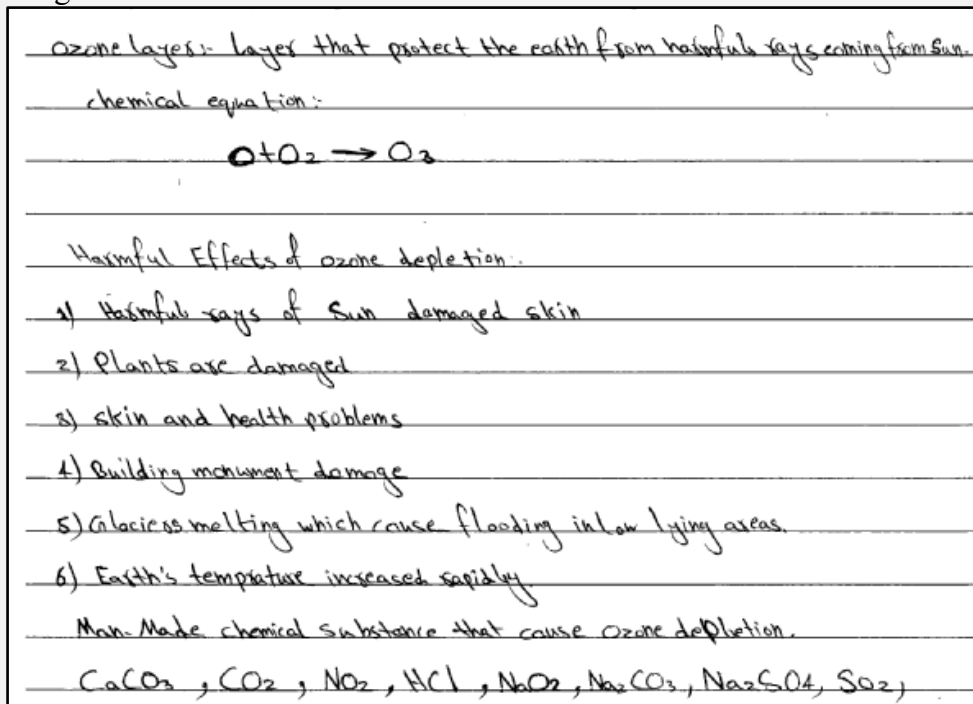 Ozone layer:- Layer that protect the earth from harmful rays coming from Sun.
chemical equation:-
O+O2 → O3
Harmful Effects of ozone depletion:.
1) Harmful rays of Sun damaged skin
2) Plants are damaged
3) skin and health problems
4) Building monument damage
5) Glaciers melting which cause flooding in low lying areas.
6) Earth's temprature increased rapidly.
Man-Made chemical substance that cause ozone depletion.
CaCO3 , CO2 , NO2 , HCl , NaO2 , Na2CO3 , Na2SO4, SO2,